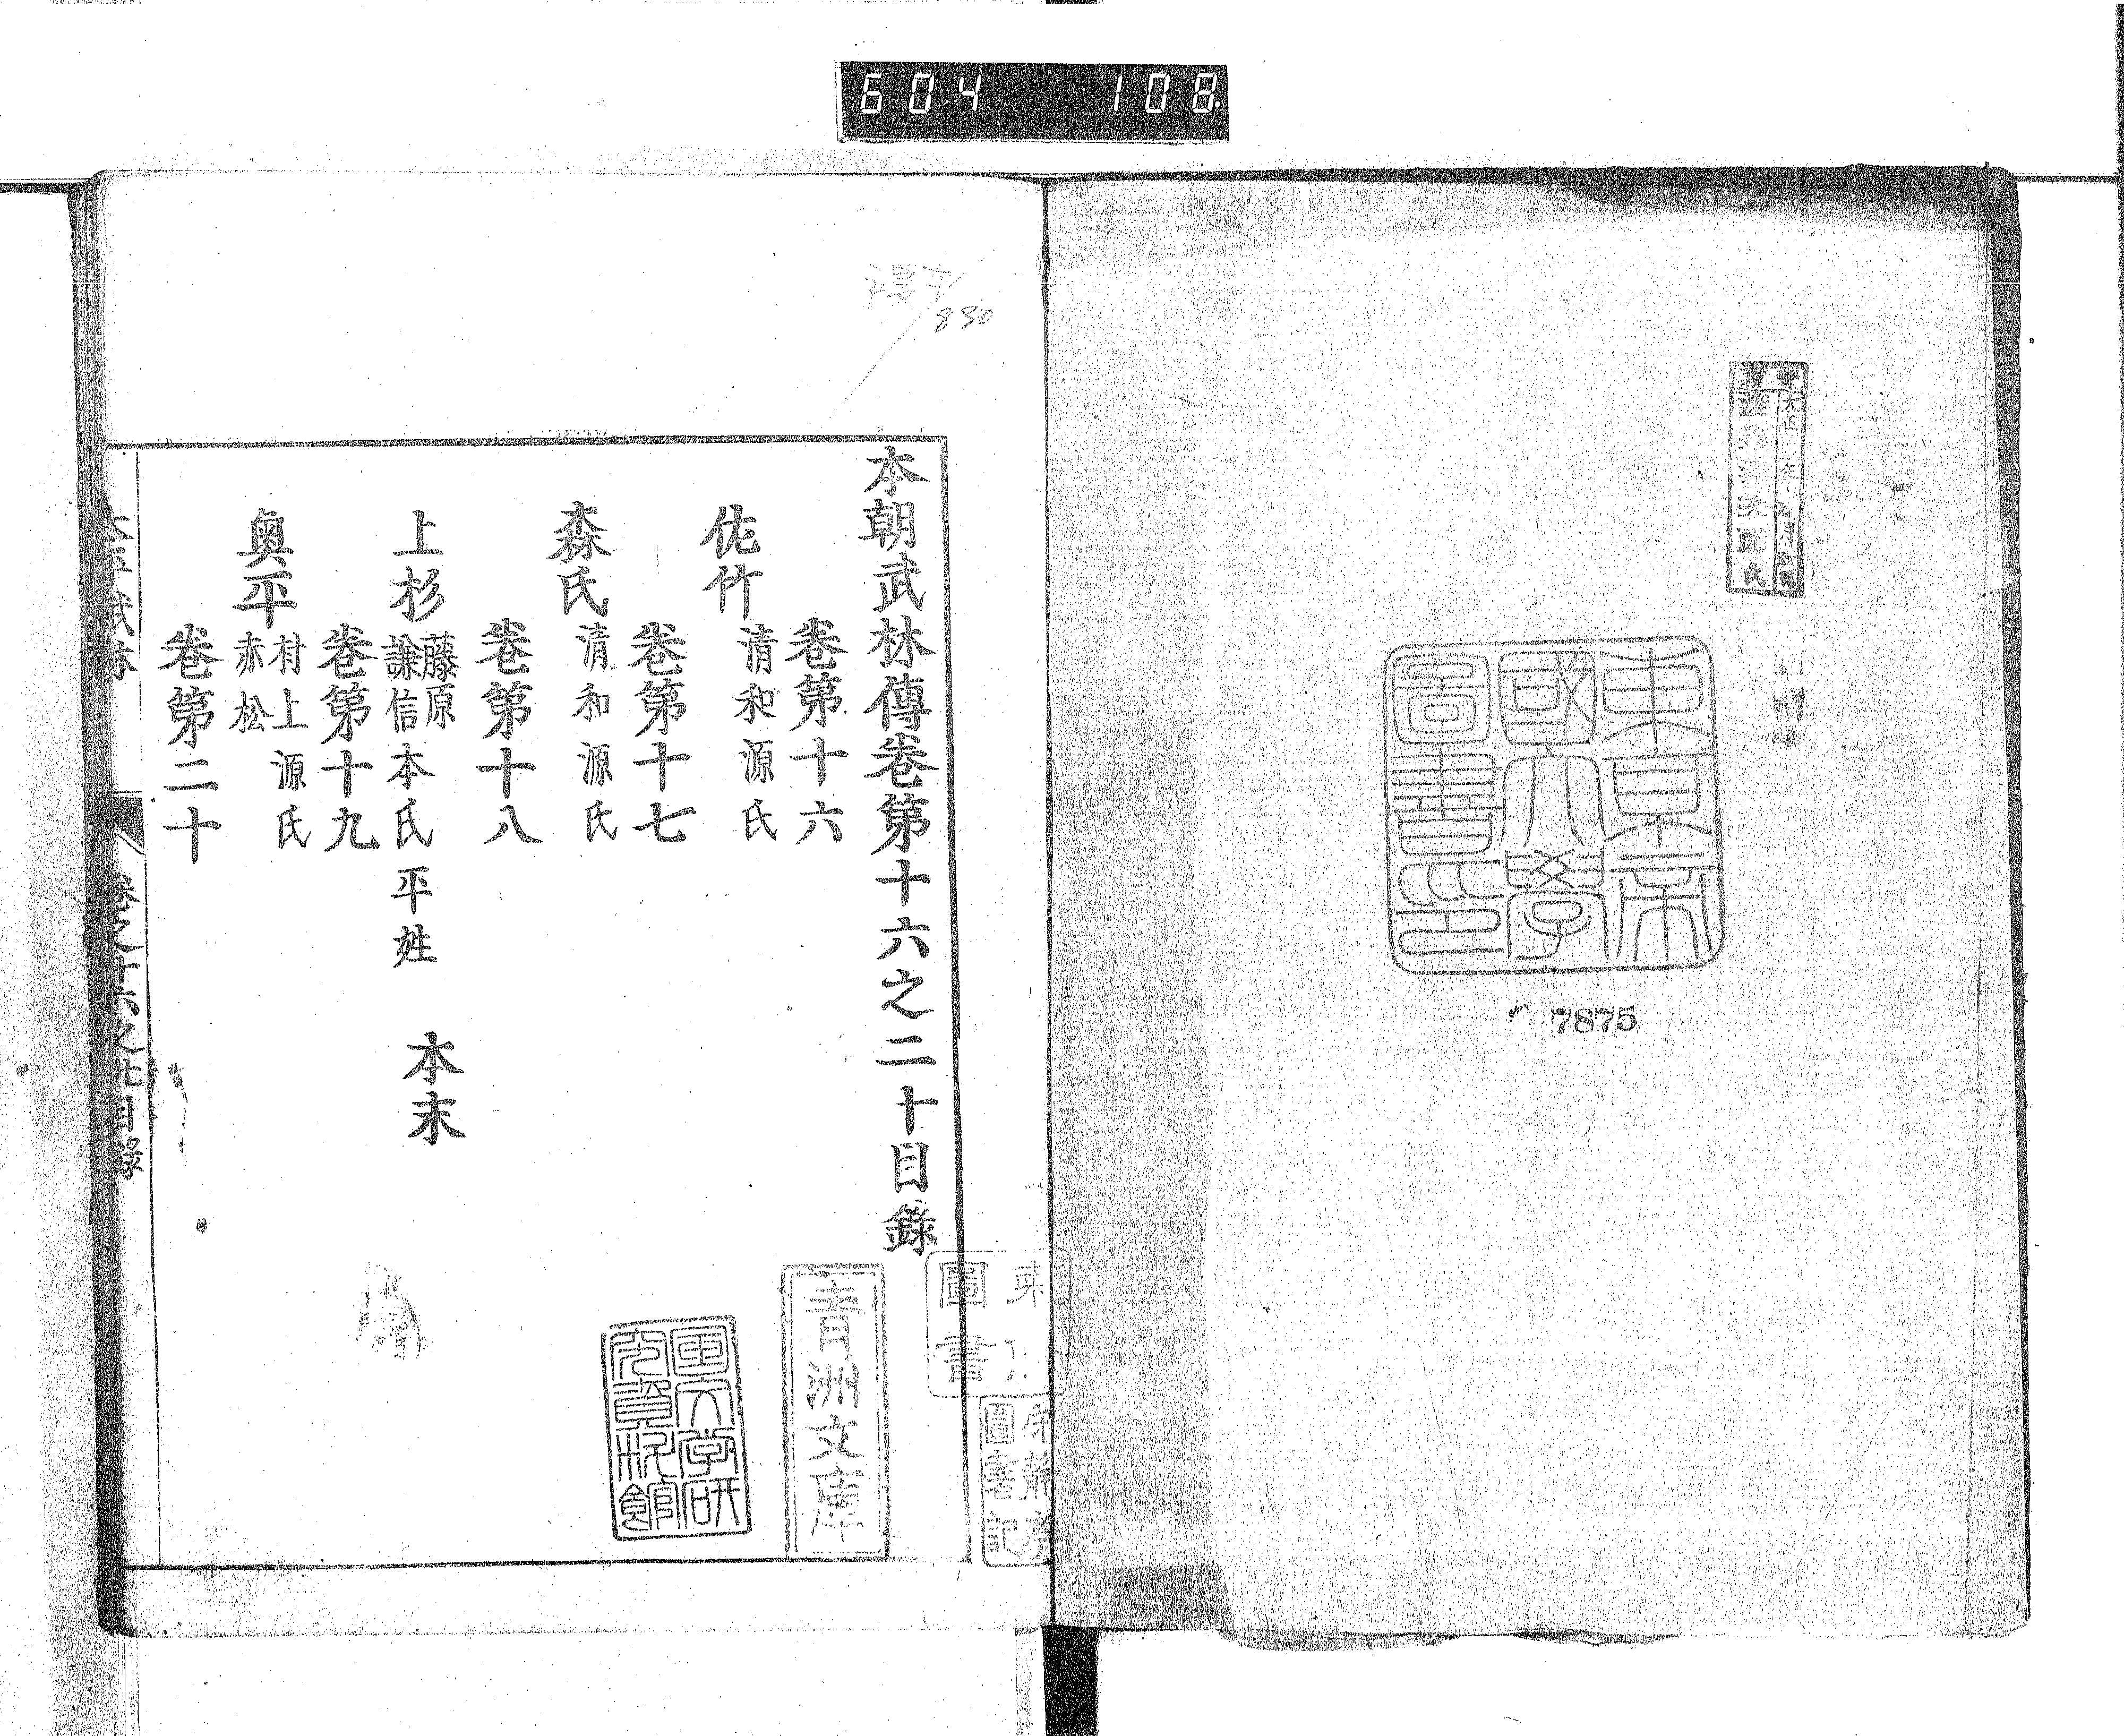 604 108
大正 年 月
東京帝
國大學
圖書之印
7875
830
本朝武林傳卷第十六之二十目錄
卷第十六
佐竹 清和源氏
卷第十七
森氏 清和源氏
卷第十八
上杉 藤原 謙信本氏平姓 本末
卷第十九
奧平 村上源氏 赤松
卷第二十
卷之十六之廿目錄
圖書
圖書記
青洲文庫
国文学研
究資料館